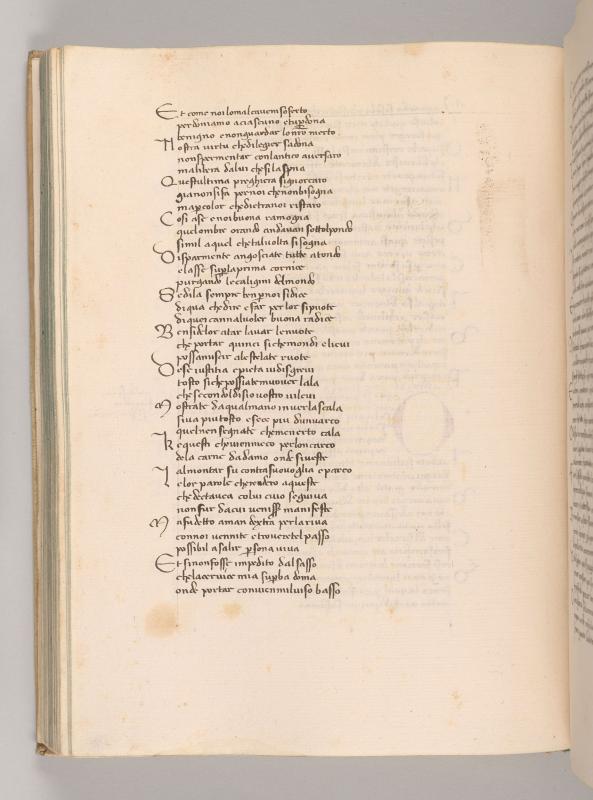 Et come noi lo mal cavem soferto
perdoniamo a ciascuno et tu perdona
benigno e non guardar lo nro merto
Nostra virtu che di legier sadona
non spermentar con lantico aversaro
ma libera da lui che si la sprona
Questultima preghiera signor caro
gia non si fa per noi che non bisogna
ma per color che dietro a noi ristaro
Cosi a se e noi buona ramogna
quelombre orando andavan sottol pondo
simil a quel che tal volta si sogna
Disparmente angosciate tutte a tondo
e lasse supra la prima cornice
purgando le caligini del mondo
Se di la sempre ben per noi si dice
di qua che dire e far per lor si puote
di quei cannal voler buona radice
Ben si de lor atar lavar le note
che portar quinci si che mondi e lievi
possan uscir a le stelate ruote
Deh se iustitia e pieta vi disgrevi
tosto si che possiate muover lala
che secondol disio vostro vi levi
Mostrate da qual mano in ver la scala
si va piu tosto e se ce piu dun varco
quel nen segnate che men erto cala
Ke questi che vien meco per loncarco
de la carne dadamo onde si veste
al montar su contra suo voglia e parco
Le lor parole che rendero a queste
che dette avea colui cuio seguiva
non fur da cui venisser manifeste
Ma fu detto a man dextra per la riva
con noi venite e trovere tel passo
possibil a salir persona viva
Et si non fosse impedito dal sasso
che la cervice mia superba doma
onde portar convienmi il viso basso